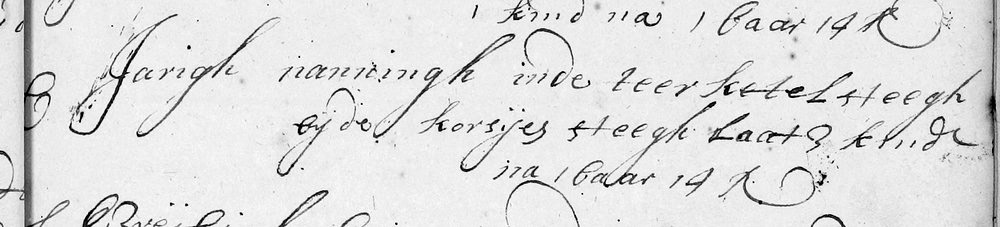 1 kind na 1 baar 14 R
Jarigh nanningh inde teer ketel steegh
by de korsijes steegh laat 3 kindr
na 1 baar 14 R